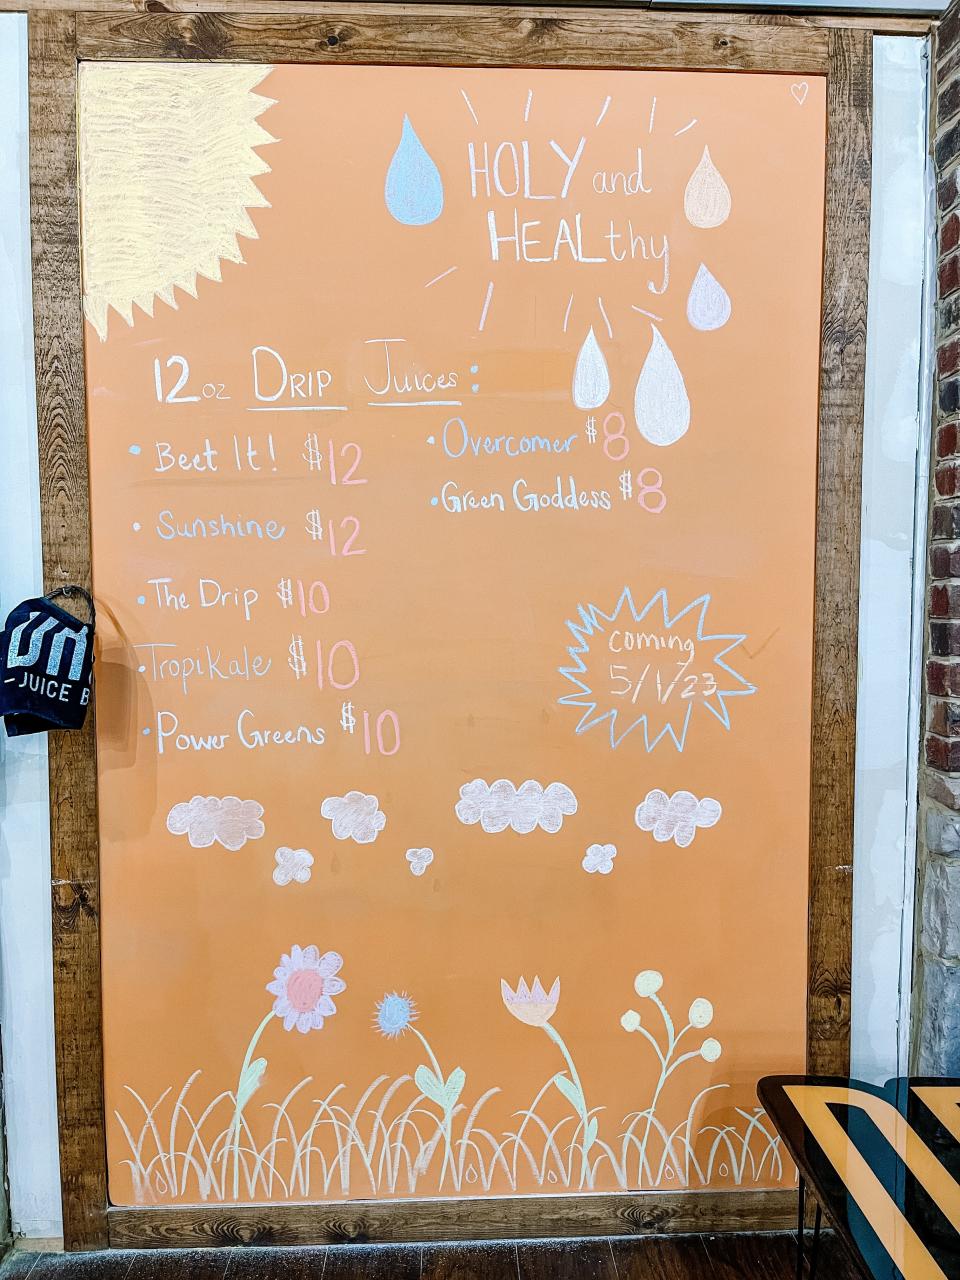 HOLY and
HEALthy
12 oz DRIP Juices:
• Beet It! $12
• Sunshine $12
• The Drip $10
• TropiKale $10
• Power Greens $10
• Overcomer $8
• Green Goddess $8
coming
5/1/23
- JUICE B